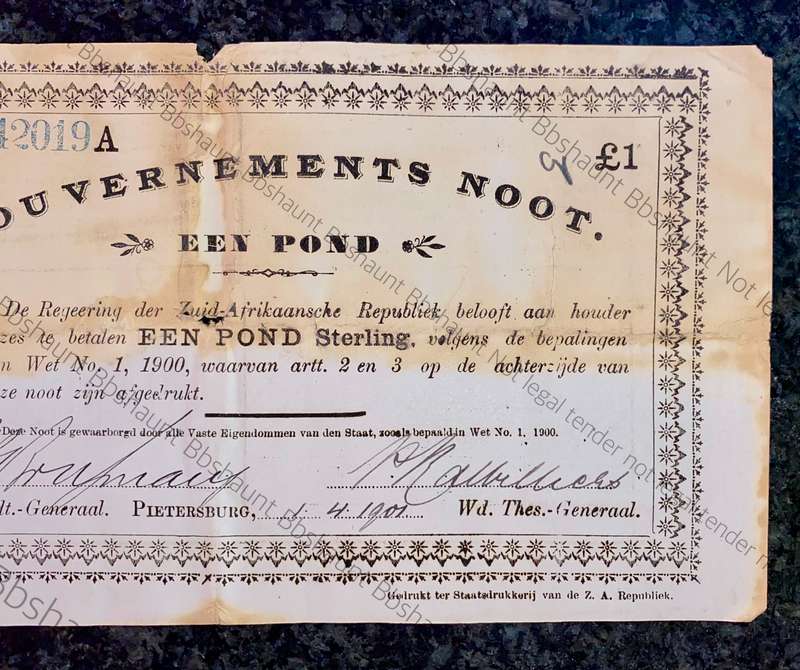 42019 A
£1
OUVERNEMENTS NOOT.
EEN POND
De Regeering der Zuid-Afrikaansche Republiek belooft aan houder
zes te betalen EEN POND Sterling, volgens de bepalingen
n Wet No. 1, 1900, waarvan artt. 2 en 3 op de achterzijde van
ze noot zijn afgedrukt.
Deze Noot is gewaarborgd door alle Vaste Eigendommen van den Staat, zooals bepaald in Wet No. 1, 1900.
dt.-Generaal. PIETERSBURG, 1 4 1901 Wd. Thes.-Generaal.
Gedrukt ter Staatsdrukkerij van de Z. A. Republiek.
Bbshaunt Not legal tender